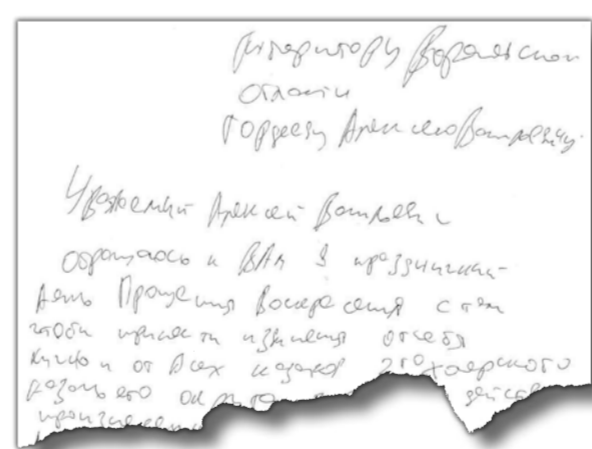 Губернатору Воронежской
области
Гордееву Алексею Васильевичу.
Уважаемый Алексей Васильевич
обращаюсь к ВАм в праздничный
день Прощения Воскресения с тем
чтобы принести извинения от себя
лично и от Всех казаков Хоперского
казачьего округа